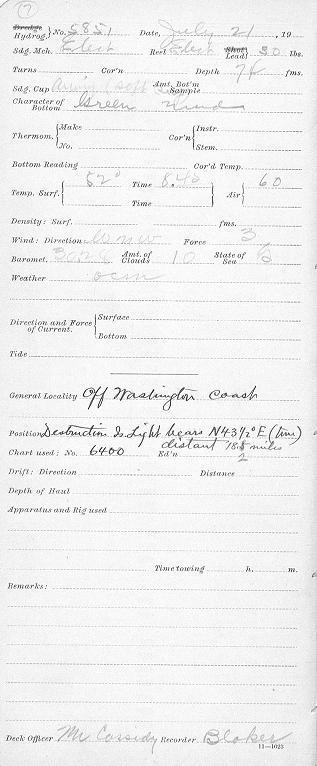 (7)
Dredge
Hydrog. No. 5851 Date, July 21, 19
Sdg. Mch. Elect Reel Elect Shot Lead 50 lbs.
Turns Cor'n Depth 78 fms.
Sdg. Cup Amt. Bot'm Sample
Character of Bottom Green Mud
Thermom. Make No. Cor'n Instr. Stem.
Bottom Reading Cor'd Temp.
Temp. Surf. 52° Time 8.40 Air 60
Time
Density: Surf. fms.
Wind: Direction WNW Force 3
Baromet. Amt. of Clouds 10 State of Sea
Weather ocm
Direction and Force of Current. Surface
Bottom
Tide
General Locality Off Washington Coast
Position Destruction Is. Light bears N 43½° E (true)
distant miles
Chart used: No. 6400 Ed'n
Drift: Direction Distance
Depth of Haul
Apparatus and Rig used
Time towing h. m.
Remarks:
Deck Officer McCassidy Recorder Blaker
11—1023